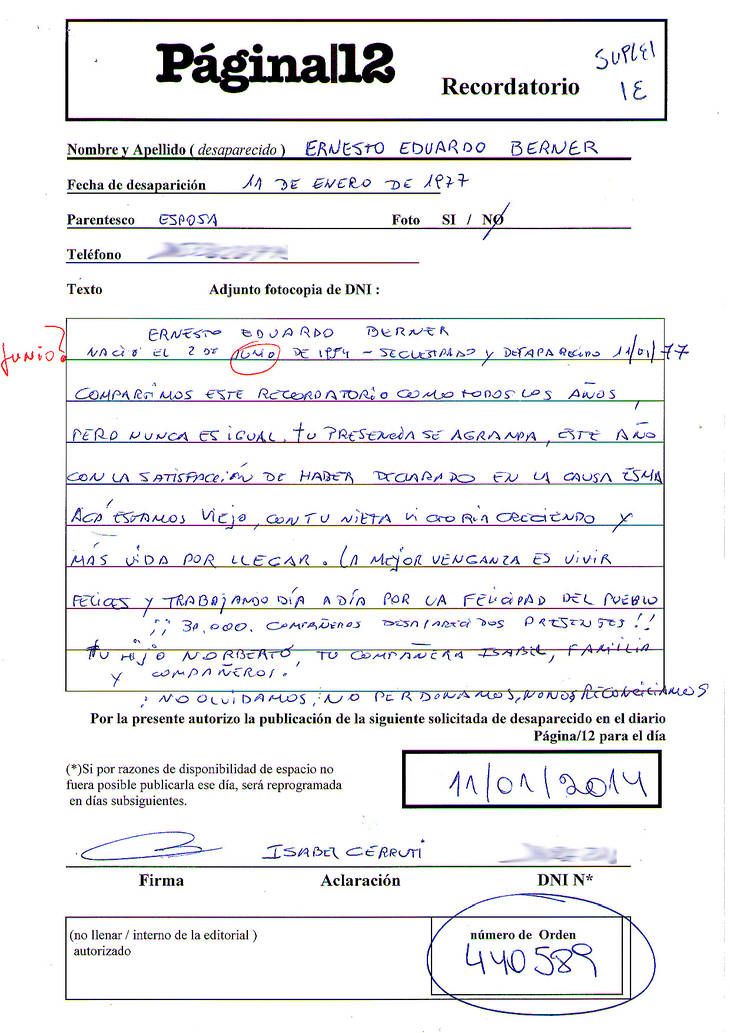 Página|12
Recordatorio
SUPLE!
1E
Nombre y Apellido ( desaparecido ) ERNESTO EDUARDO BERNER
Fecha de desaparición 11 DE ENERO DE 1977
Parentesco ESPOSA Foto SI / NO
Teléfono
Texto Adjunto fotocopia de DNI :
ERNESTO EDUARDO BERNER
JUNIO?
NACIÓ EL 2 DE JUNIO DE 1954 - SECUESTRADO y DESAPARECIDO 11/01/77
COMPARTIMOS ESTE RECORDATORIO COMO TODOS LOS AÑOS,
PERO NUNCA ES IGUAL. TU PRESENCIA SE AGRANDA, ESTE AÑO
CON LA SATISFACCIÓN DE HABER DECLARADO EN LA CAUSA ESMA
ACÁ ESTAMOS VIEJO, CON TU NIETA VICTORIA CRECIENDO Y
MÁS VIDA POR LLEGAR. LA MEJOR VENGANZA ES VIVIR
FELICES Y TRABAJANDO DÍA A DÍA POR LA FELICIDAD DEL PUEBLO
¡¡ 30.000. COMPAÑEROS DESAPARECIDOS PRESENTES!!
TU HIJO NORBERTO, TU COMPAÑERA ISABEL, FAMILIA
Y COMPAÑEROS.
¡NO OLVIDAMOS, NO PERDONAMOS, NO NOS RECONCILIAMOS
Por la presente autorizo la publicación de la siguiente solicitada de desaparecido en el diario
Página/12 para el día
(*)Si por razones de disponibilidad de espacio no
fuera posible publicarla ese día, será reprogramada
en días subsiguientes.
11/01/2014
ISABEL CERRUTI
Firma Aclaración DNI N*
(no llenar / interno de la editorial )
autorizado
número de Orden
440589